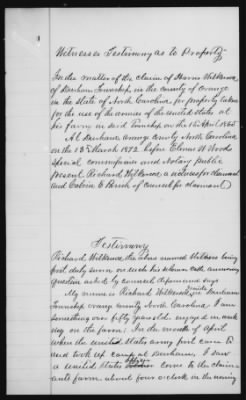 Witnesses Testimony as to Property
In the matter of the claim of Harris Wilkerson
of Durham Township in the county of Orange
in the State of North Carolina for property taken
for the use of the armies of the United States at
his farm in said Township on the 16 April 1865
At Durham Orange County North Carolina
on the 13th March 1872 before Elmus W Woods
special commissioner and Notary public
present Richard Wilkerson, a witness for claimant
and Calvin E Parish of Counsel for claimant
Testimony
Richard Wilkerson the above named Witness being
first duly sworn on such his solemn oath answering
question asked by counsel deposes and says
My name is Richard Wilkerson, reside in Durham
Township Orange County North Carolina. I am
something over fifty years old engaged in work
ing on the farm. In the month of April
when the United States army first came to
and took up camp at Durham, I saw
a United States come to the claim
ants farm about four o'clock in the evening